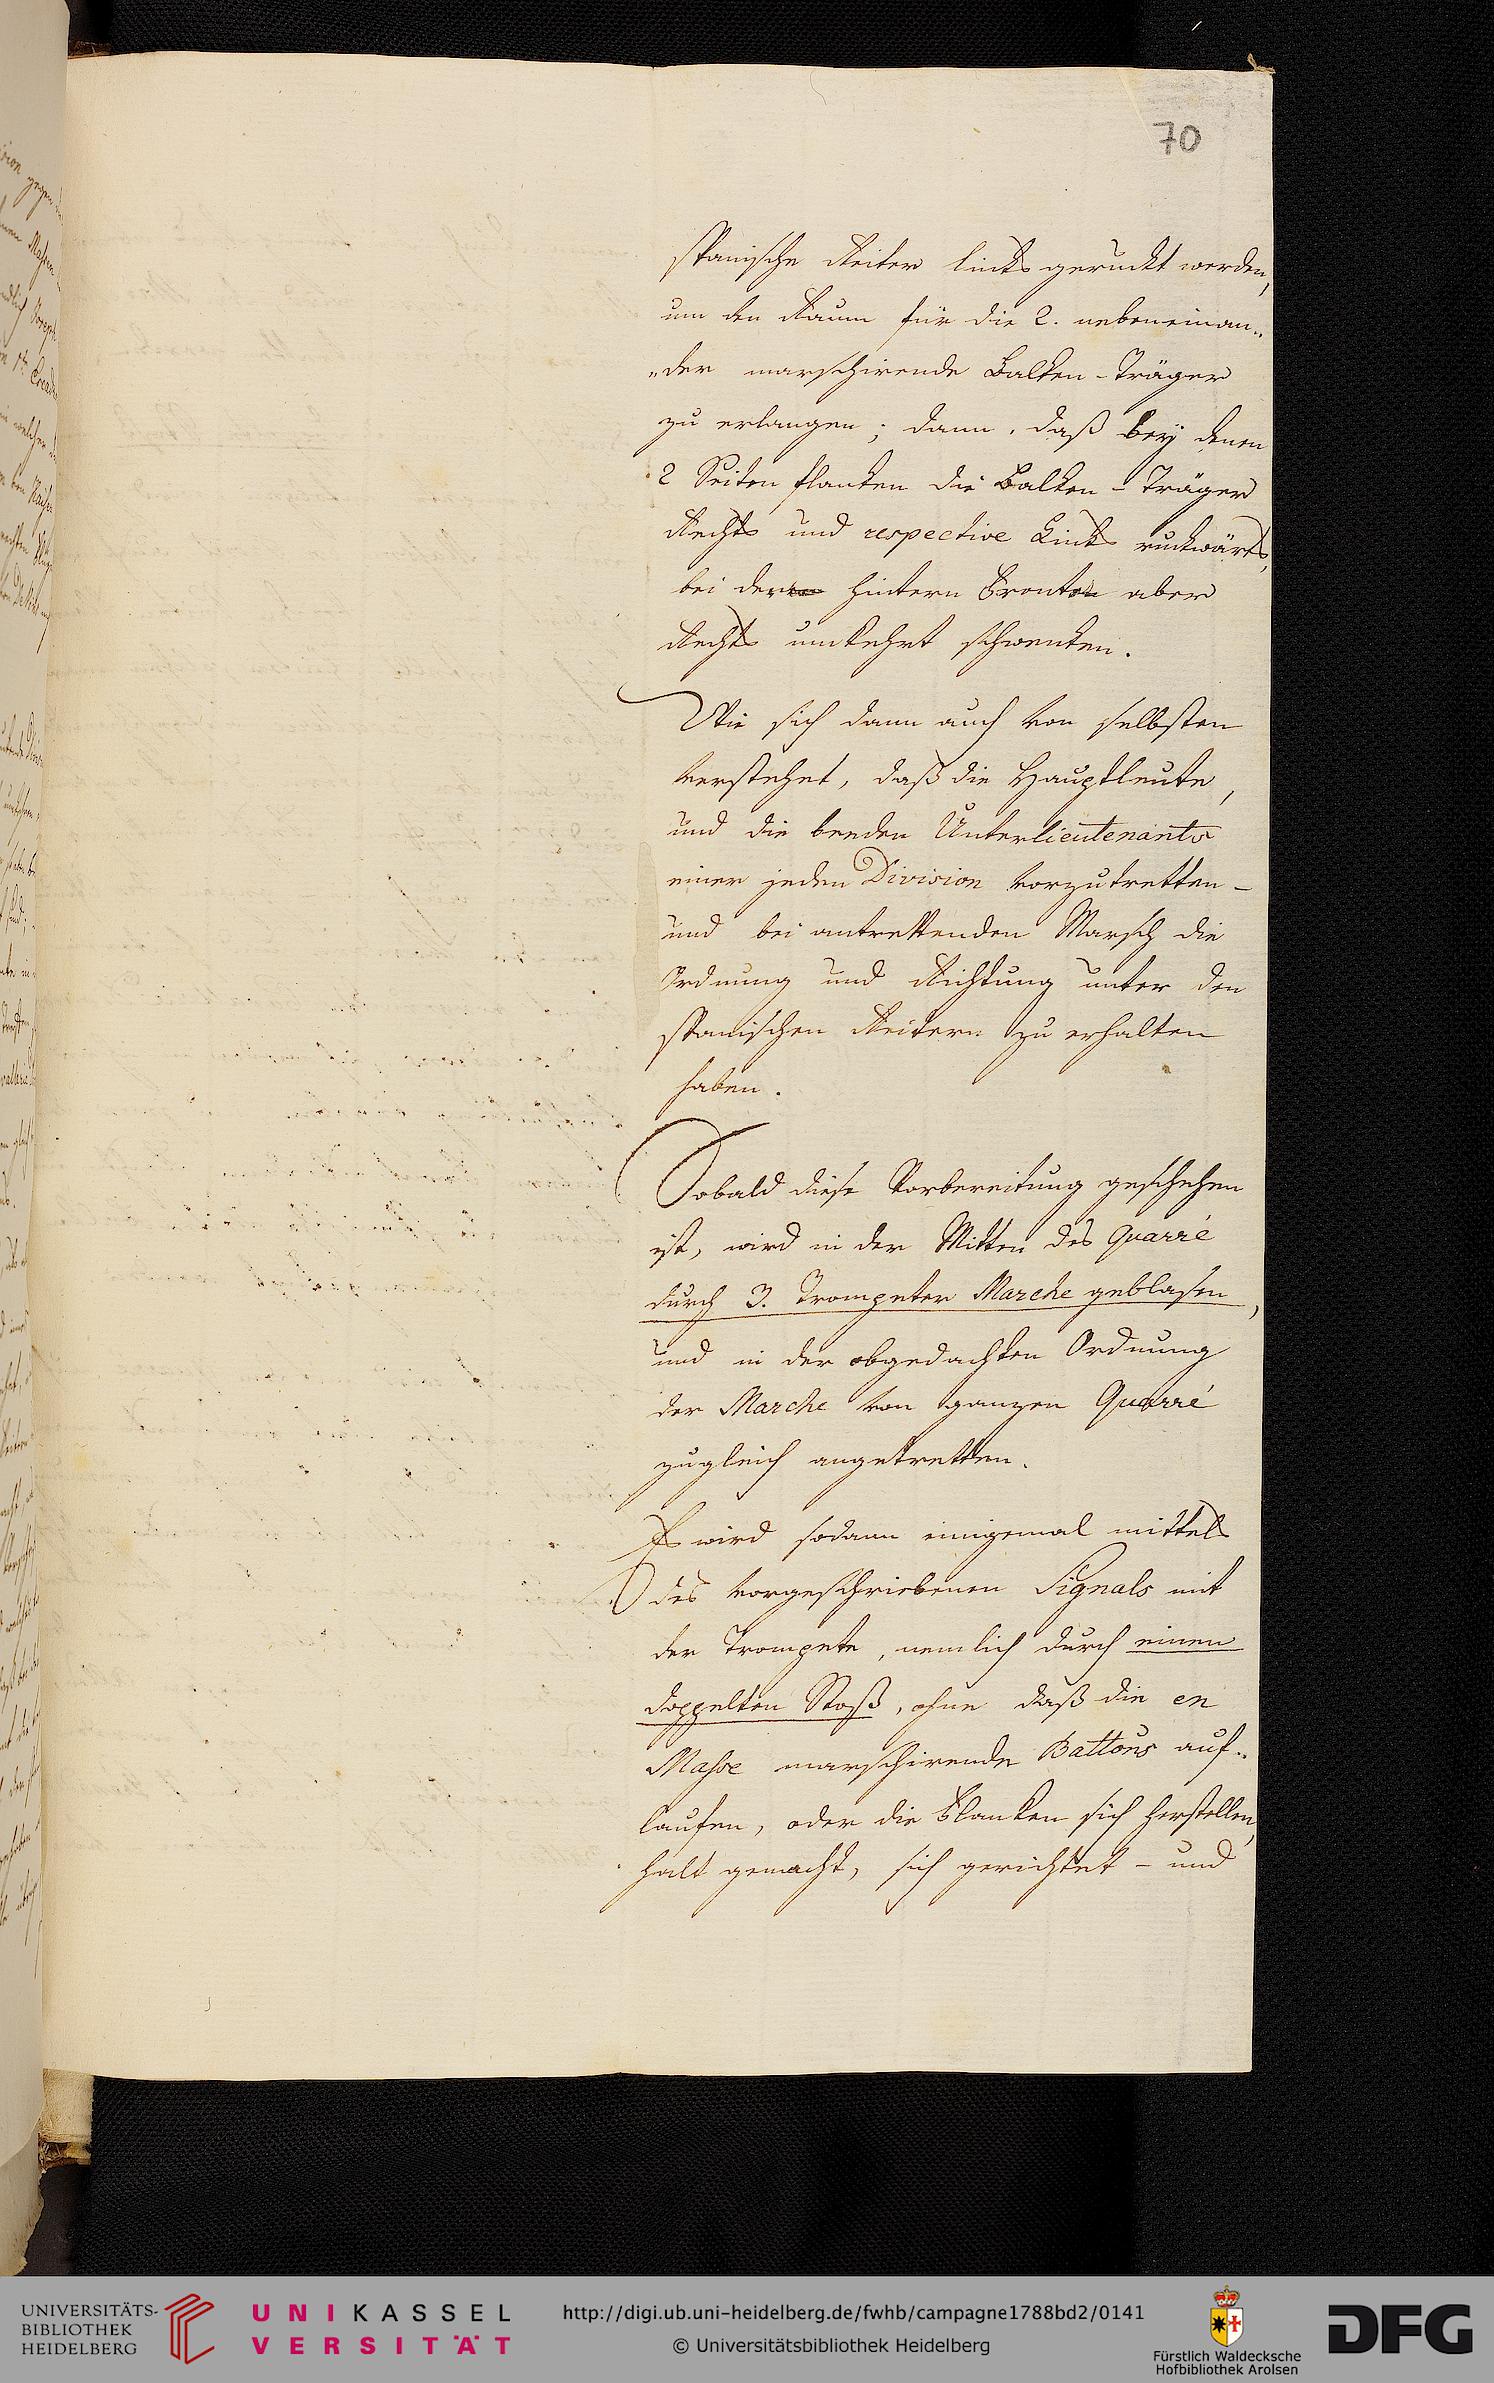 70
spanische Reiter lincks geruckt werden,
um den Raum für die 2. nebeneinan„
„der marschirende Balken-Träger
zu erlangen; dann, daß beÿ denen
2 Seiten flanken die Balken-Träger
Rechts und respective Lincks ruckwärts,
bei der hintern Fronte aber
Rechts umkehrt schwenken.
Wie sich dann auch von selbsten
verstehet, daß die Hauptleute,
und die beeden Unterlieutenants
einer jeden Division vorzutretten –
und bei antrettenden Marsch die
Ordnung und Richtung unter den
spanischen Reitern zu erhalten
haben.
Sobald diese Vorbereitung geschehen
ist, wird in der Mitten des Quarré
durch 3. Trompeter Marche geblasen,
und in der obgedachten Ordnung
der Marche von ganzen Quarré
zugleich angetretten.
Es wird sodann einigemal mittels
des vorgeschriebenen Signals mit
der Trompete, nemlich durch einen
doppelten Stoß, ohne daß die en
Masse marschirende Battons auf„
laufen, oder die Flanken sich herstellen,
halt gemacht, sich gerichtet – und
UNIVERSITÄTS-
BIBLIOTHEK
HEIDELBERG
UNIKASSEL
VERSITÄT
http://digi.ub.uni-heidelberg.de/fwhb/campagne1788bd2/0141
© Universitätsbibliothek Heidelberg
Fürstlich Waldecksche
Hofbibliothek Arolsen
DFG